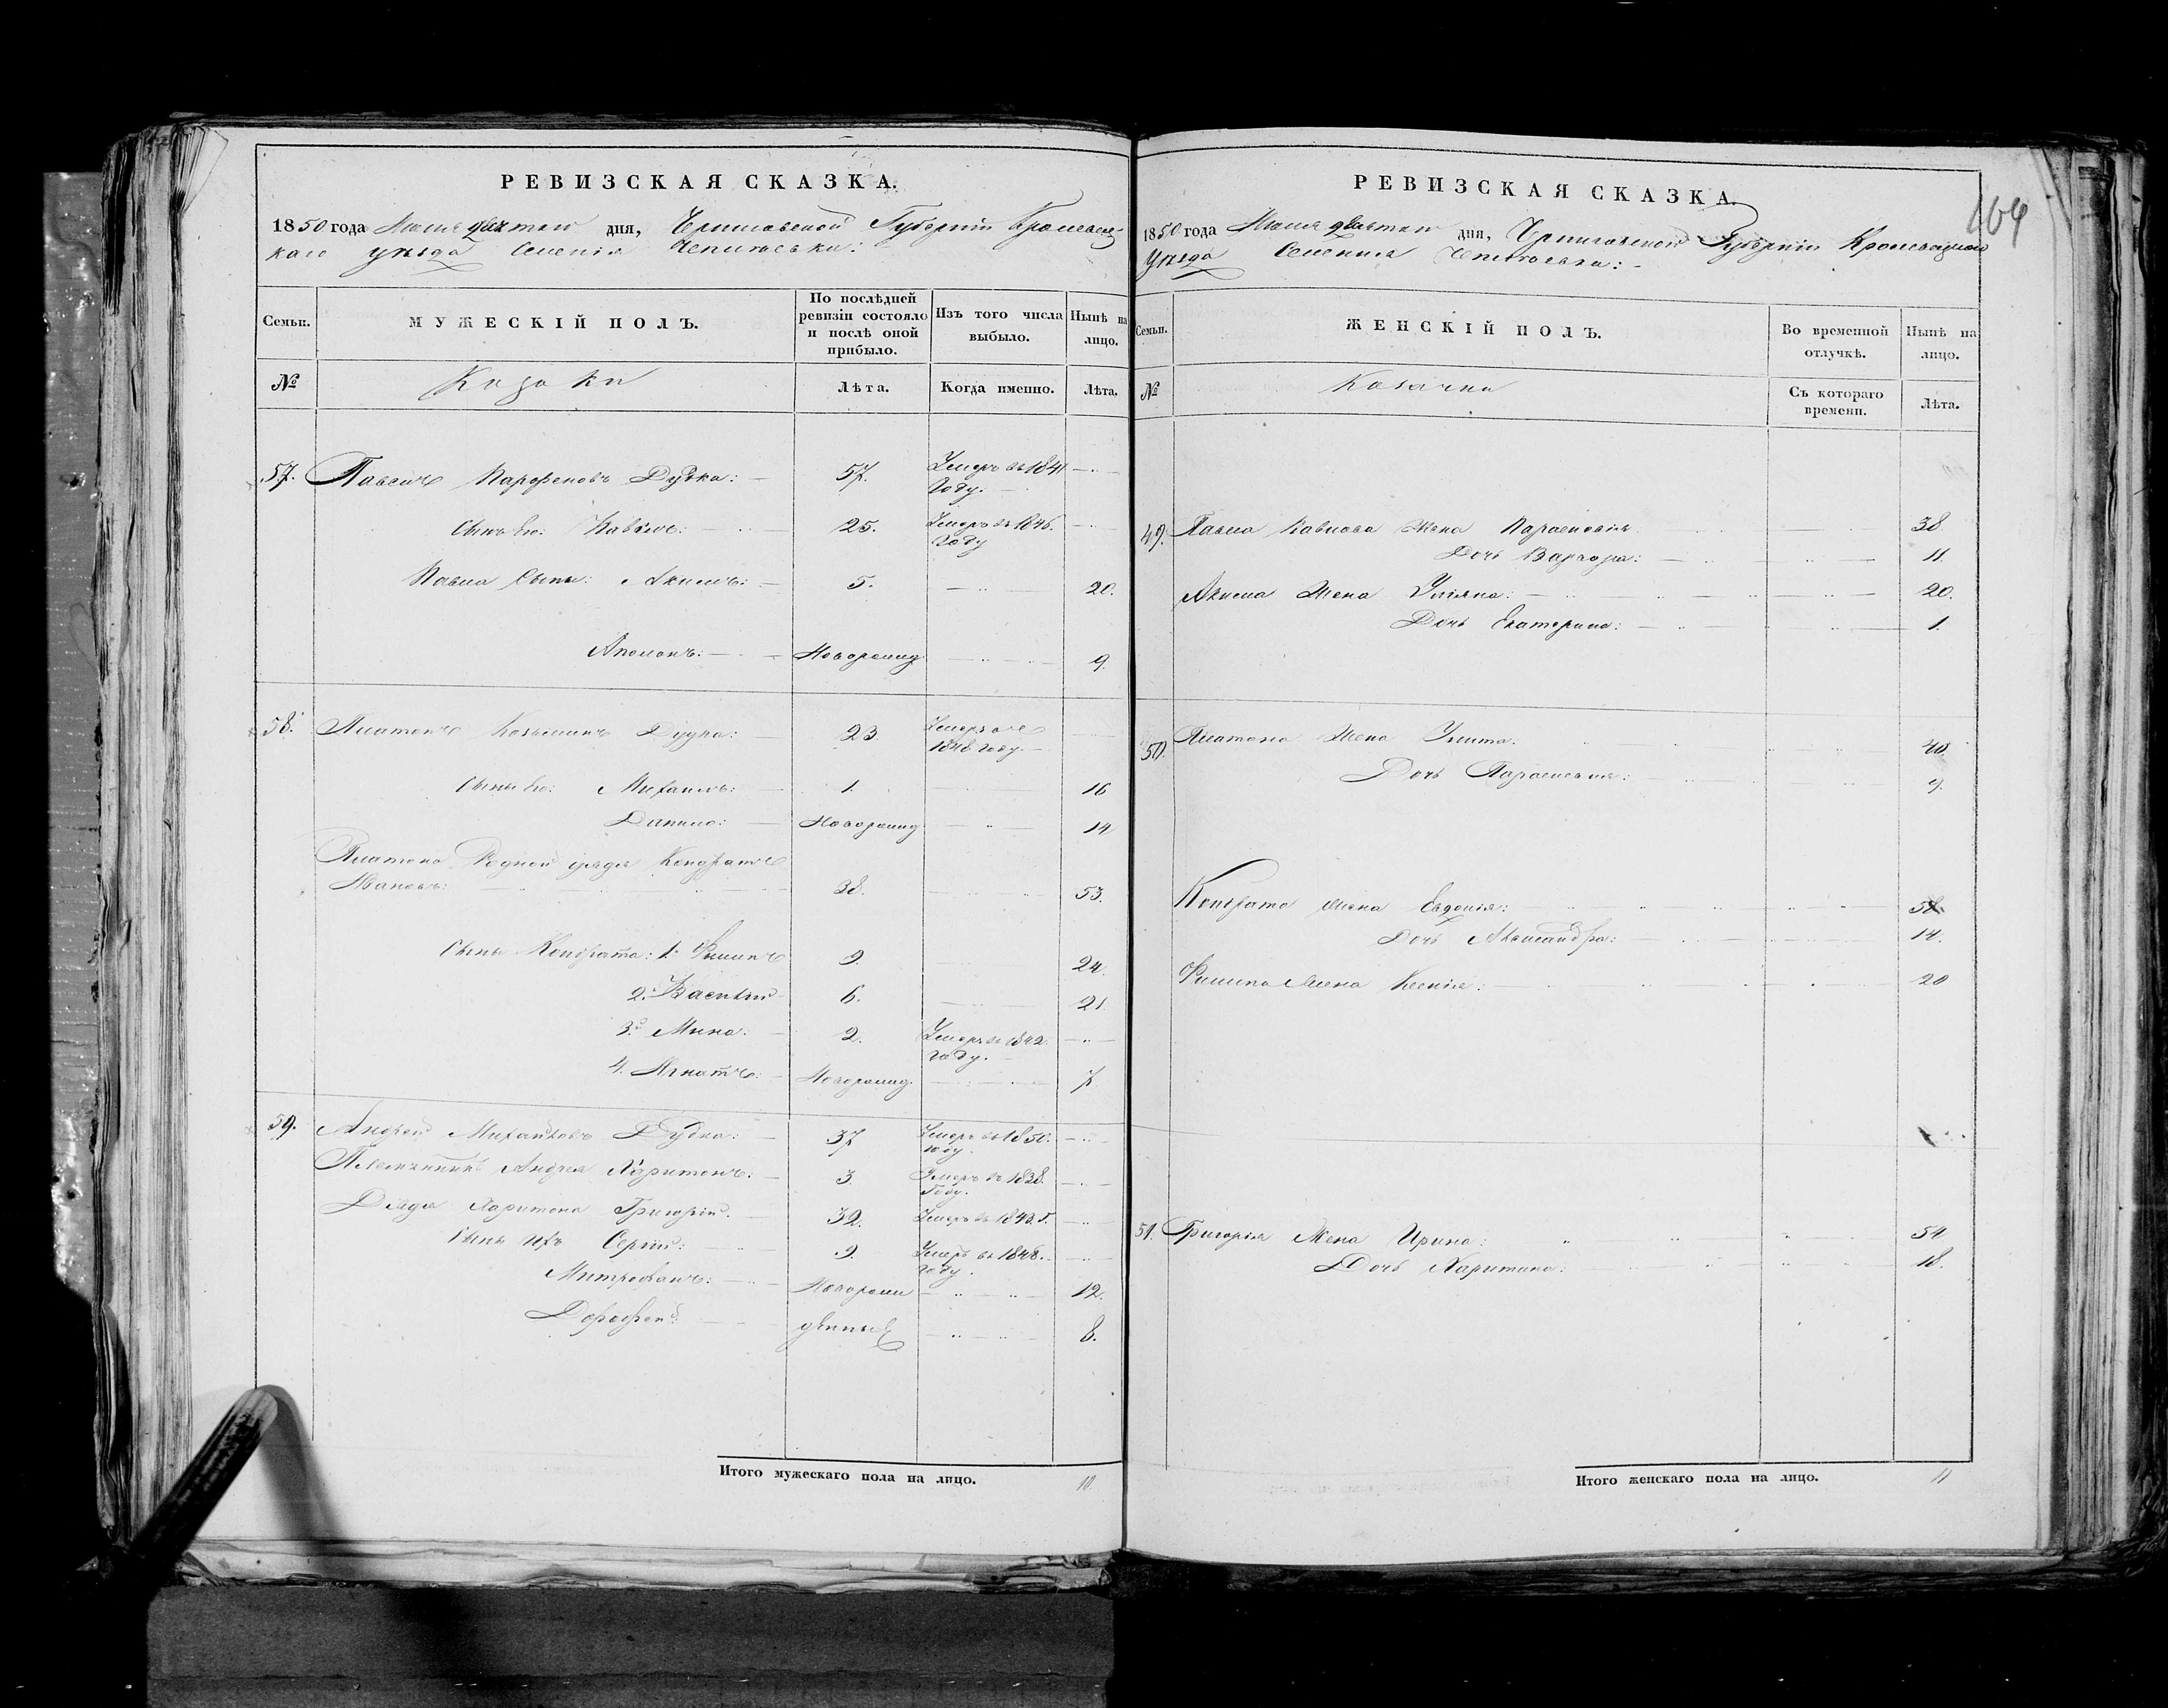 РЕВИЗСКАЯ СКАЗКА.
1850 года дня, Черниговской Губернiи Кролевец
каго уѣзда Селенiя
Семьи.
МУЖЕСКIЙ ПОЛЪ.
По послѣдней ревизiи состояло и послѣ оной прибыло.
Изъ того числа выбыло.
Нынѣ на лицо.
№
Козаки
Лѣта.
Когда именно.
Лѣта.
57. Парфеновъ Дудка: 57. Умеръ въ 1841
Году.
Сынъ его: Павелъ: 25. Умеръ въ 1846.
Году
Павла Сыны: Акимъ: 5. 20.
Новорожд 9.
58. Платонъ Козьминъ Дудка: 23 Умеръ въ
1848 Году.
Сыны его: Михаилъ: 1. 16
Данило: Новорожд 14
Платона Родной дядя Кондратъ
Ивановъ: 38. 53.
Сыны Кондрата: 1. Филипъ 9. 24.
2. Василiй 6. 21
3. Мина: 2. Умеръ въ 1842.
году.
4. Игнатъ: Новорожд 7
59. Андрей Михайловъ Дудка: 37 Умеръ въ 1850.
году.
Племянникъ Андрея Харитонъ: 3. Умеръ въ 1838.
Году.
Дядя Харитона Григорiй. 32. Умеръ въ 1843 г.
Сыны его Сергiй: 9. Умеръ въ 1848.
Году.
Митрофанъ: Новорож 12.
Дорофей: денные 8.
Итого мужескаго пола на лицо. 10.
РЕВИЗСКАЯ СКАЗКА.
164
1850 года дня, Черниговской Губернiи Кролевецкаго
Уѣзда Селенiя
Семьи.
ЖЕНСКIЙ ПОЛЪ.
Во временной отлучкѣ.
Нынѣ на лицо.
№
Козачки
Съ котораго времени.
Лѣта.
49. Павла Жена 38.
Дочь Варвара: 11.
Акима Жена Улiяна: 20.
Дочь Екатерина: 1.
50. Платона Жена Улита: 40.
Дочь Параскевiя: 9.
Кондрата Жена Евдокiя:
Дочь Александра: 14.
Филипа Жена Ксенiя: 20
51. Григорiя Жена Ирина: 54
Дочь Харитина: 18.
Итого женскаго пола на лицо. 11